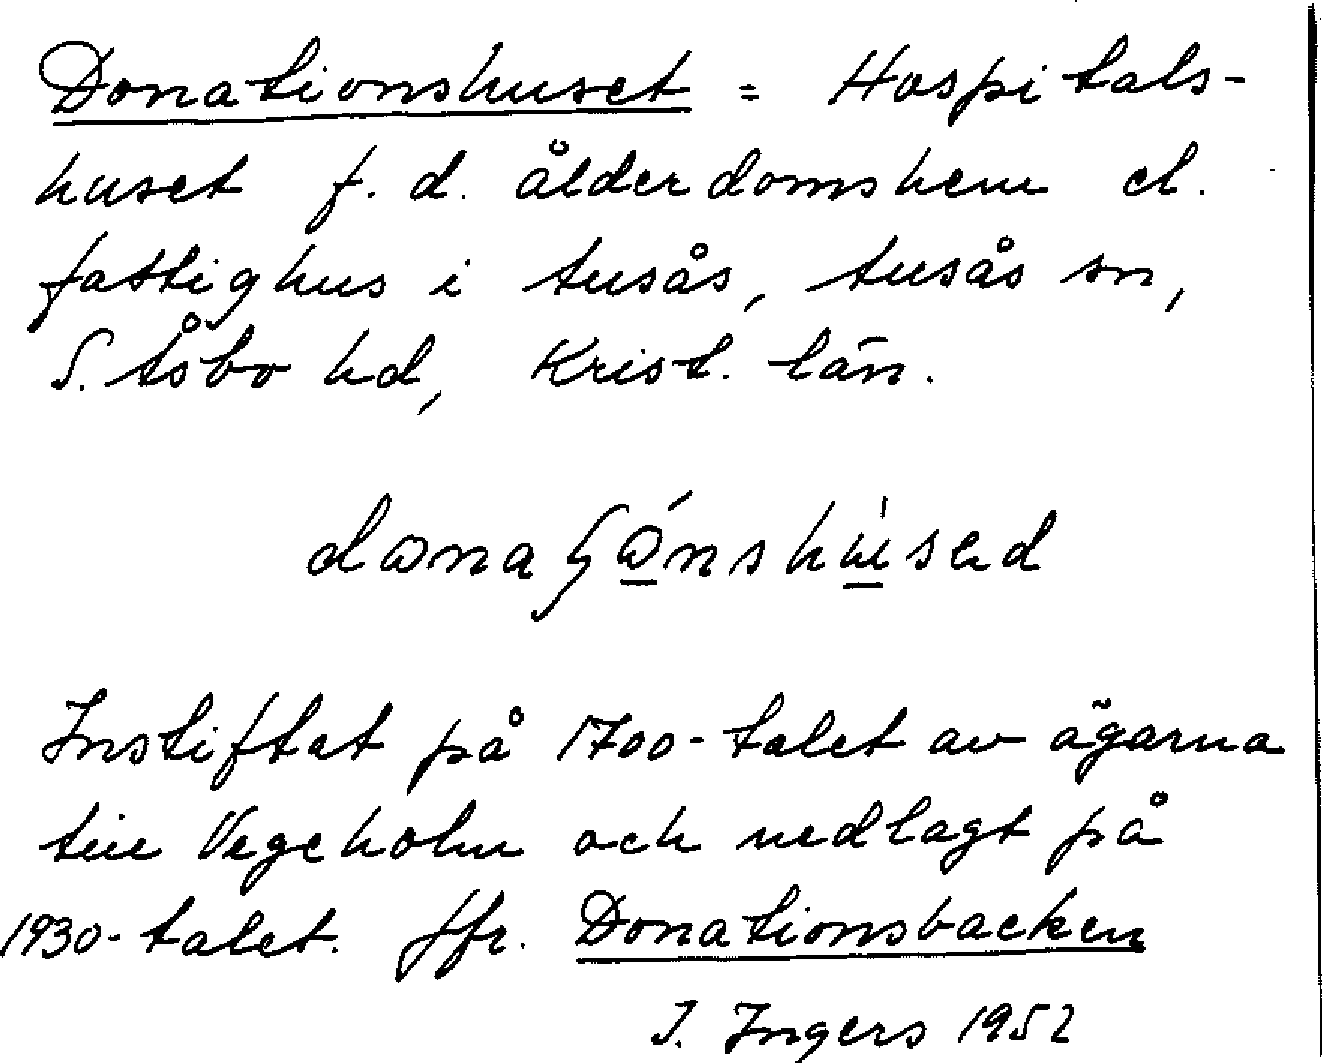 Donationshuset = Hospitals-
huset f. d. ålderdomshem el.
fattighus i Ausås, Ausås sn,
S. Åsbo hd, Krist. län.
Instiftat på 1700-talet av ägarna
till Vegeholm och nedlagt på
1930-talet. Jfr. Donationsbacken
I. Ingers 1952